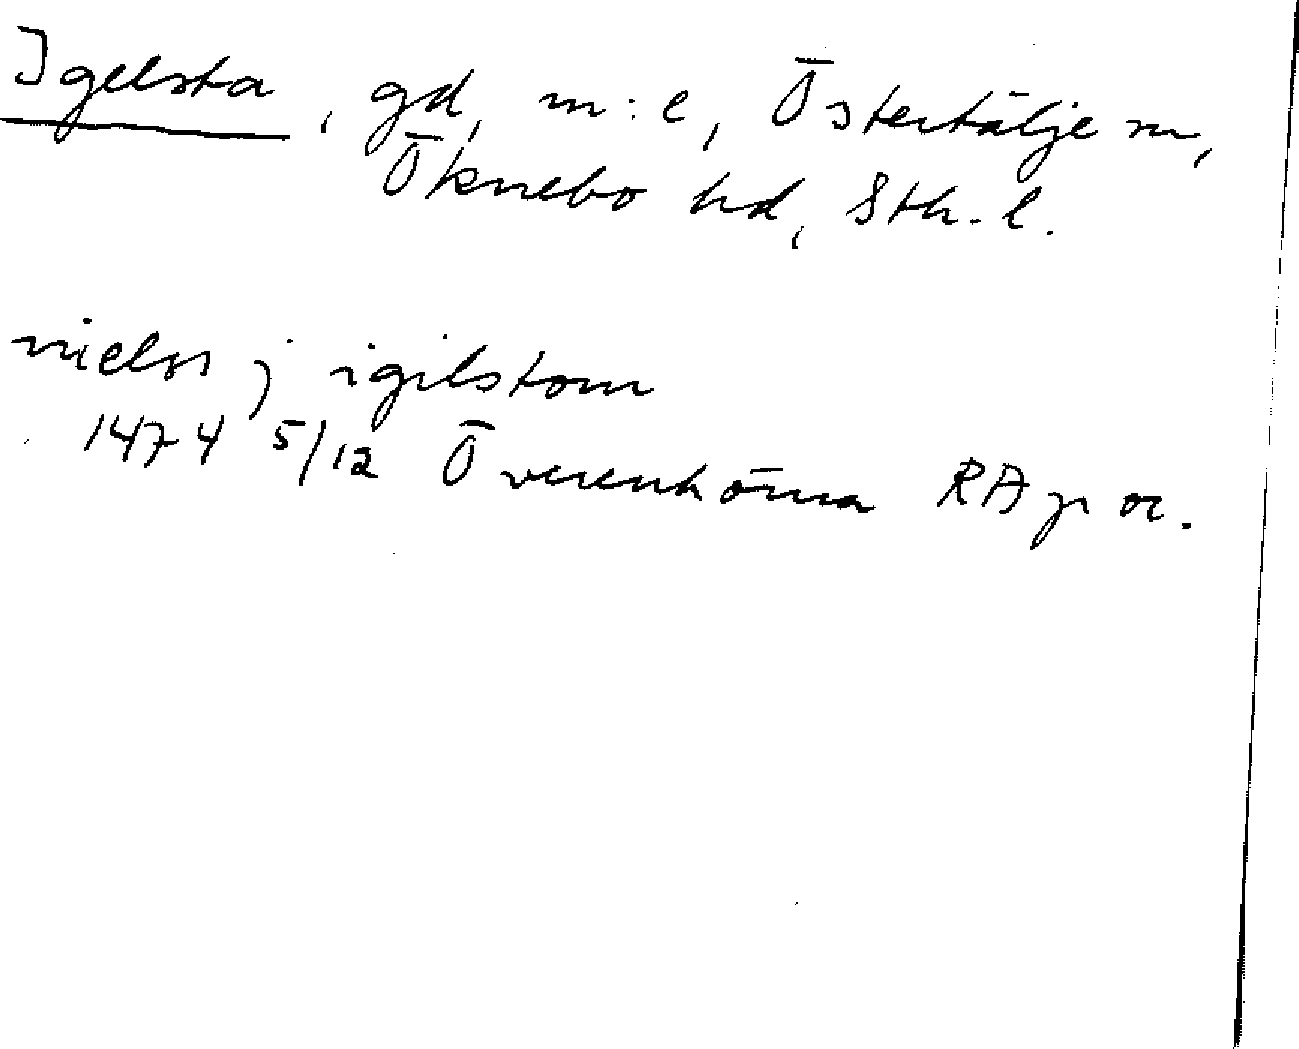 Igelsta, gd, m:e, Östertälje sn,
Öknebo hd, Sth. l.
nielss j igilstom
1474 5/12 Överenhörna RA p or.